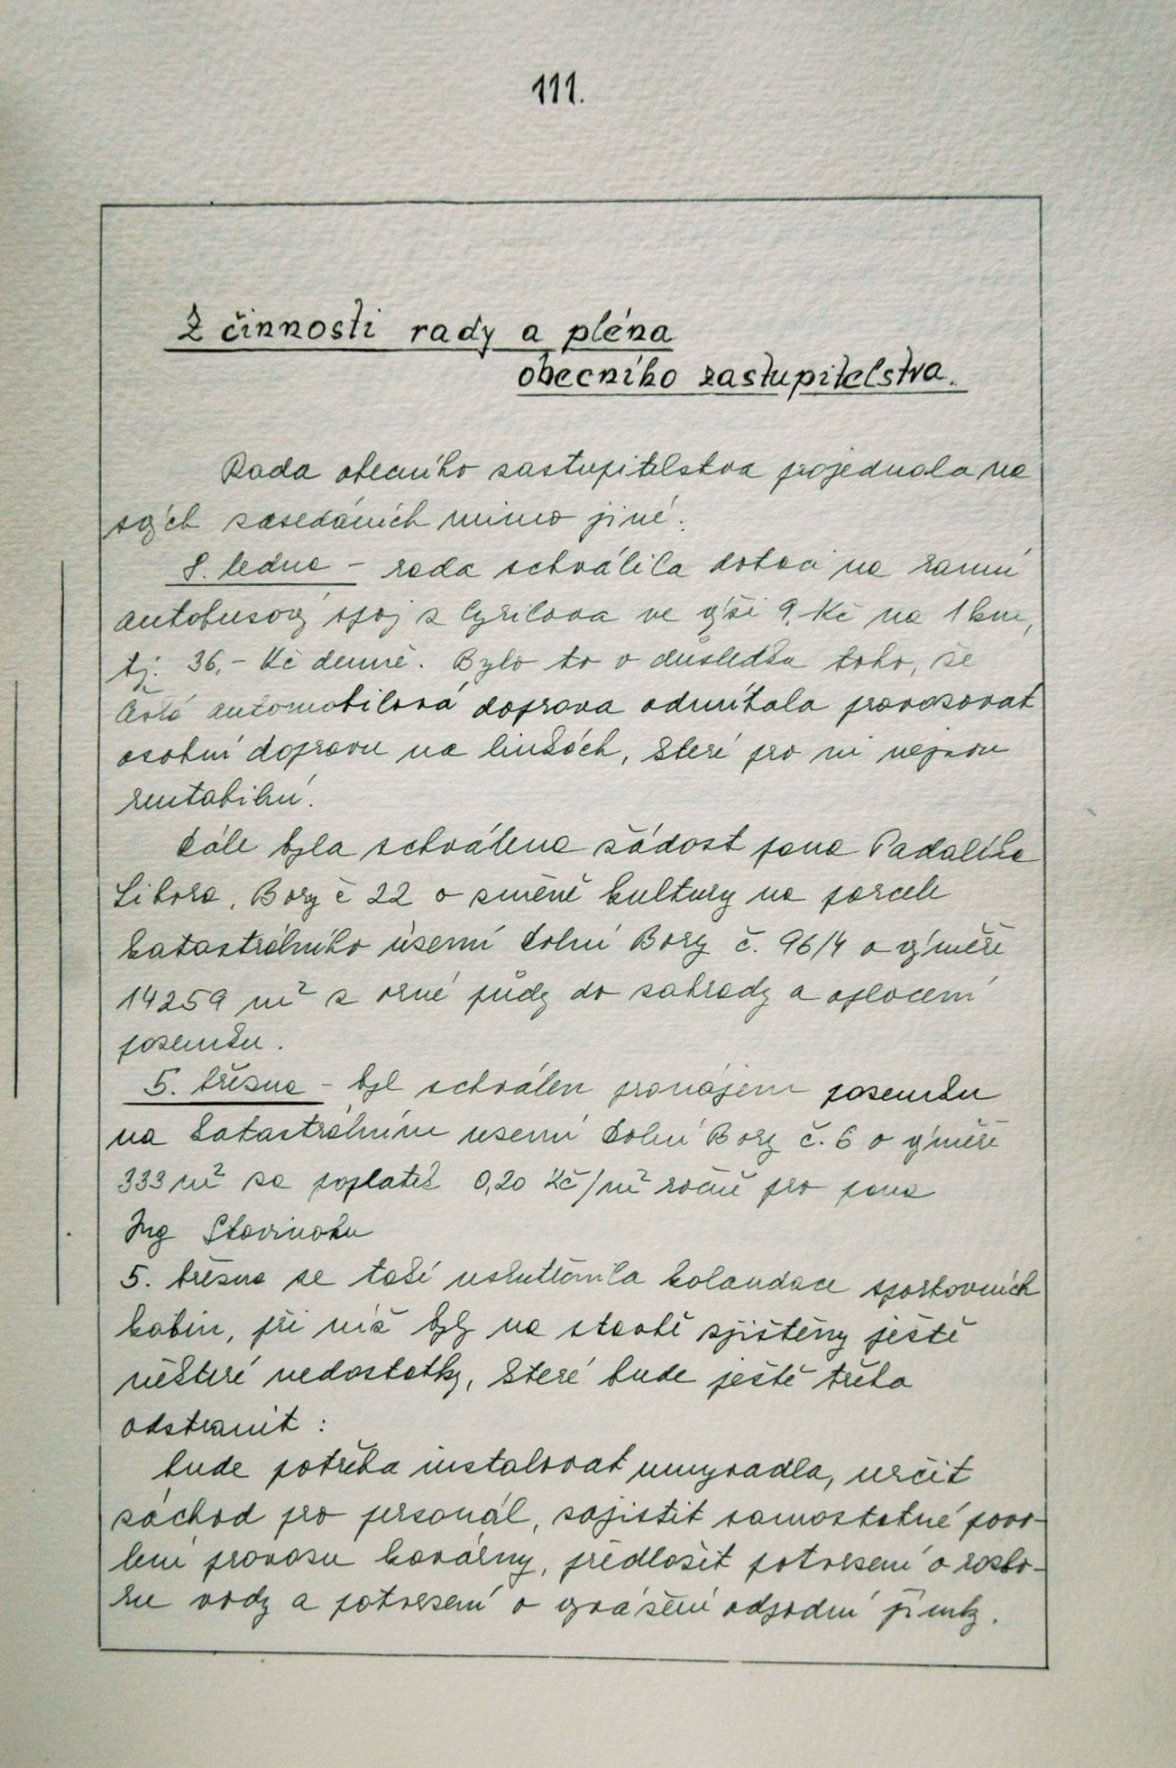 111.
Z činnosti rady a pléna
obecního zastupitelstva.
Rada obecního zastupitelstva projednala na
svých zasedáních mimo jiné:
8. ledna - rada schválila dotaci na ranní
autobusový spoj z Cyrilova ve výši 9,- Kč na 1 km,
tj. 36,- Kč denně. Bylo to v důsledku toho, že
automobilová doprava odmítala provozovat
osobní dopravu na linkách, které pro ni nejsou
rentabilní.
Dále byla schválena žádost pana Padalíka
Libora, Bory č 22 o změně kultury na parcele
katastrálního území Dolní Bory č. 96/4 o výměře
14259 m² z orné půdy do zahrady a oplocení
pozemku.
5. března - byl schválen pronájem pozemku
na katastrálním uzemí Dolní Bory č. 6 o výměře
333 m² za poplatek 0,20 Kč/m² ročně pro pana
Ing Stavinohu
5. března se také uskutečnila kolaudace sportovních
kabin, při níž byly na stavbě zjištěny ještě
některé nedostatky, které bude ještě třeba
odstranit :
bude potřeba instalovat umyvadla, určit
záchod pro personál, zajistit samostatné povo-
lení provozu kavárny, předložit potvrzení o rozbo-
ru vody a potvrzení o vyvážení odpadní jímky.